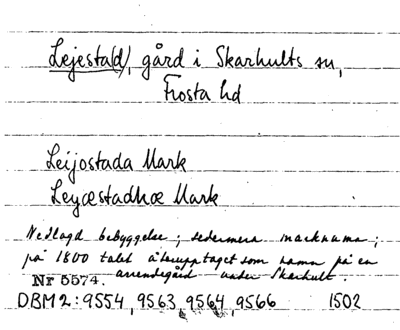 Lejesta(d), gård i Skarhults sn,
Frosta hd
Leijostada Mark
Leyæstadhæ Mark
Nedlagd bebyggelse; sedermera marknamn;
på 1800 talet återupptaget som namn på en
arrendegård under Skarhult.
Nr 5574.
DBM2: 9554, 9563, 9564, 9566 1502